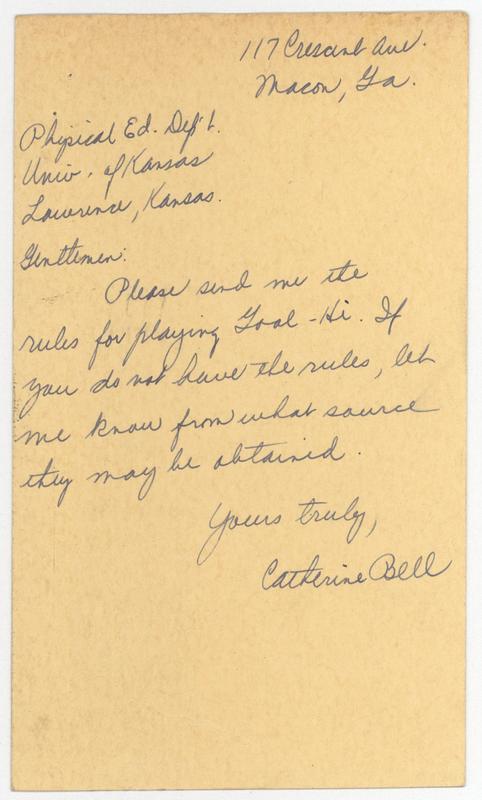 117 Crescent Ave.
Macon, Ga.
Physical Ed. Dep't.
Univ. of Kansas
Lawrence, Kansas.
Gentlemen:
Please send me the
rules for playing Goal-Hi. If
you do not have the rules, let
me know from what source
they may be obtained.
Yours truly,
Catherine Bell